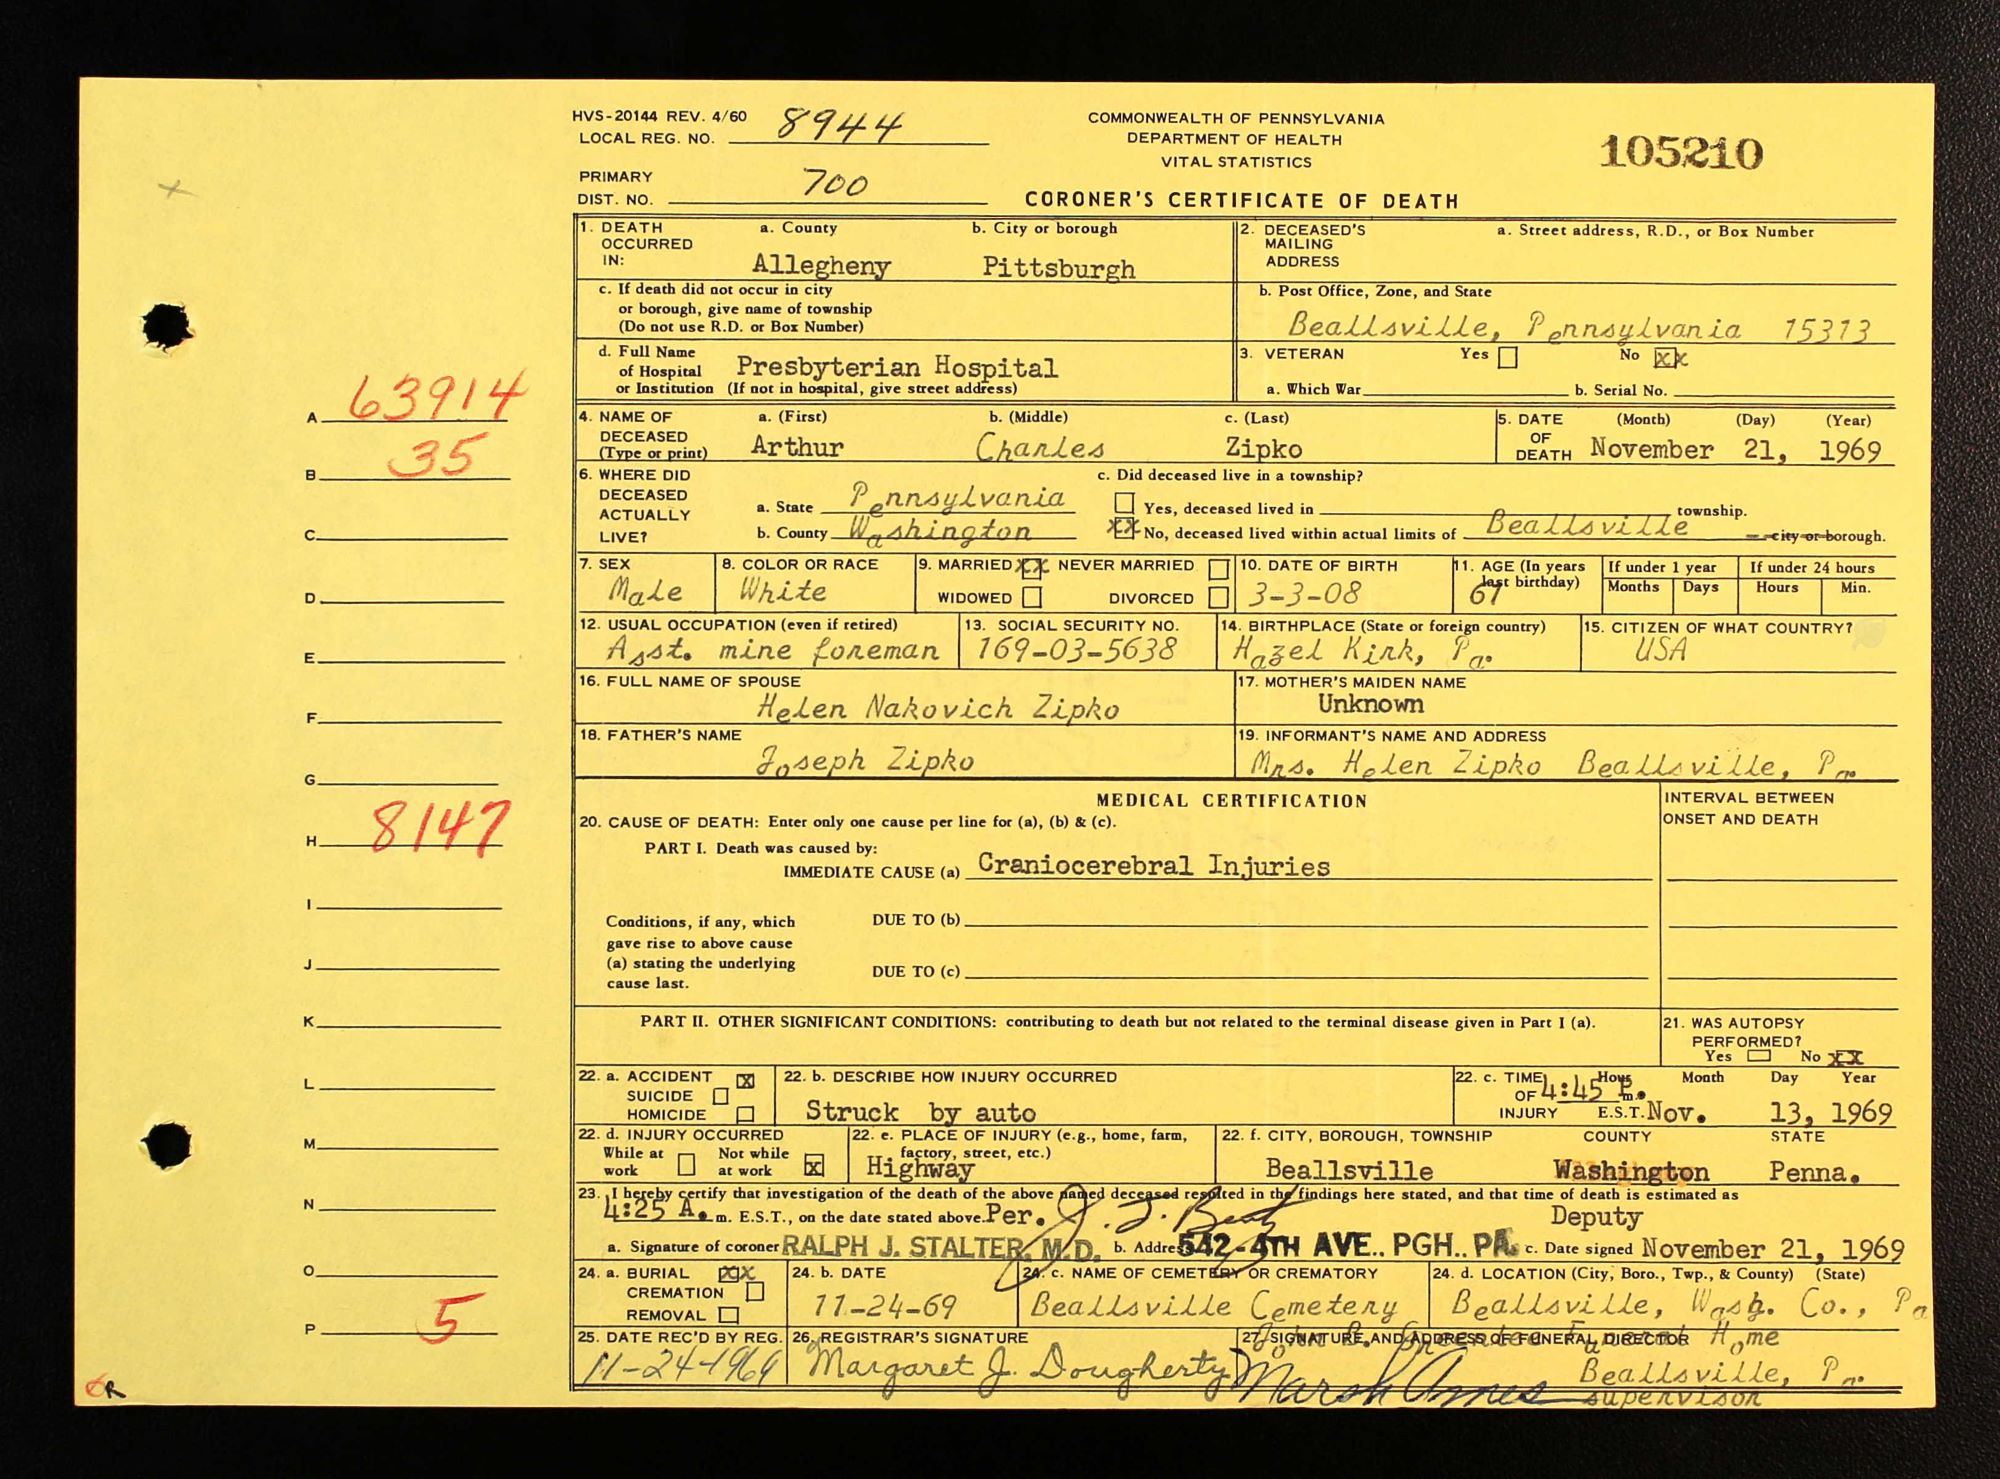 HVS-20144 REV. 4/60
LOCAL REG. NO. 8944
PRIMARY
DIST. NO. 700
COMMONWEALTH OF PENNSYLVANIA
DEPARTMENT OF HEALTH
VITAL STATISTICS
CORONER'S CERTIFICATE OF DEATH
105210
1. DEATH OCCURRED IN: a. County b. City or borough
Allegheny Pittsburgh
2. DECEASED'S MAILING ADDRESS a. Street address, R.D., or Box Number
c. If death did not occur in city
or borough, give name of township
(Do not use R.D. or Box Number)
b. Post Office, Zone, and State
Beallsville, Pennsylvania 15313
d. Full Name
of Hospital Presbyterian Hospital
or Institution (If not in hospital, give street address)
3. VETERAN Yes No XX
a. Which War b. Serial No.
4. NAME OF DECEASED (Type or print) a. (First) b. (Middle) c. (Last)
Arthur Charles Zipko
5. DATE OF DEATH (Month) (Day) (Year)
November 21, 1969
6. WHERE DID DECEASED ACTUALLY LIVE?
a. State Pennsylvania
b. County Washington
c. Did deceased live in a township?
Yes, deceased lived in township.
XX No, deceased lived within actual limits of Beallsville city or borough.
7. SEX
Male
8. COLOR OR RACE
White
9. MARRIED XX NEVER MARRIED
WIDOWED DIVORCED
10. DATE OF BIRTH
3-3-08
11. AGE (In years last birthday)
61
If under 1 year
Months Days
If under 24 hours
Hours Min.
12. USUAL OCCUPATION (even if retired)
Asst. mine foreman
13. SOCIAL SECURITY NO.
169-03-5638
14. BIRTHPLACE (State or foreign country)
Hazel Kirk, Pa.
15. CITIZEN OF WHAT COUNTRY?
USA
16. FULL NAME OF SPOUSE
Helen Nakovich Zipko
17. MOTHER'S MAIDEN NAME
Unknown
18. FATHER'S NAME
Joseph Zipko
19. INFORMANT'S NAME AND ADDRESS
Mrs. Helen Zipko Beallsville, Pa.
MEDICAL CERTIFICATION
INTERVAL BETWEEN
ONSET AND DEATH
20. CAUSE OF DEATH: Enter only one cause per line for (a), (b) & (c).
PART I. Death was caused by:
IMMEDIATE CAUSE (a) Craniocerebral Injuries
Conditions, if any, which
gave rise to above cause
(a) stating the underlying
cause last.
DUE TO (b)
DUE TO (c)
PART II. OTHER SIGNIFICANT CONDITIONS: contributing to death but not related to the terminal disease given in Part I (a).
21. WAS AUTOPSY
PERFORMED?
Yes No XX
22. a. ACCIDENT X
SUICIDE
HOMICIDE
22. b. DESCRIBE HOW INJURY OCCURRED
Struck by auto
22. c. TIME OF INJURY Hour Month Day Year
4:45 P. m. E.S.T. Nov. 13, 1969
22. d. INJURY OCCURRED
While at work Not while at work X
22. e. PLACE OF INJURY (e.g., home, farm,
factory, street, etc.)
Highway
22. f. CITY, BOROUGH, TOWNSHIP COUNTY STATE
Beallsville Washington Penna.
23. I hereby certify that investigation of the death of the above named deceased resulted in the findings here stated, and that time of death is estimated as
4:25 A. m. E.S.T., on the date stated above. Per. J. J. Deputy
a. Signature of coroner RALPH J. STALTER, M.D. b. Address 542-4TH AVE., PGH., PA. c. Date signed November 21, 1969
24. a. BURIAL XX
CREMATION
REMOVAL
24. b. DATE
11-24-69
24. c. NAME OF CEMETERY OR CREMATORY
Beallsville Cemetery
24. d. LOCATION (City, Boro., Twp., & County) (State)
Beallsville, Wash. Co., Pa
25. DATE REC'D BY REG.
11-24-1969
26. REGISTRAR'S SIGNATURE
Margaret J. Dougherty
27. SIGNATURE AND ADDRESS OF FUNERAL DIRECTOR
John B. Greenlee Funeral Home
Beallsville, Pa.
supervisor
A 63914
B 35
C
D
E
F
G
H 8147
I
J
K
L
M
N
O
P 5
R